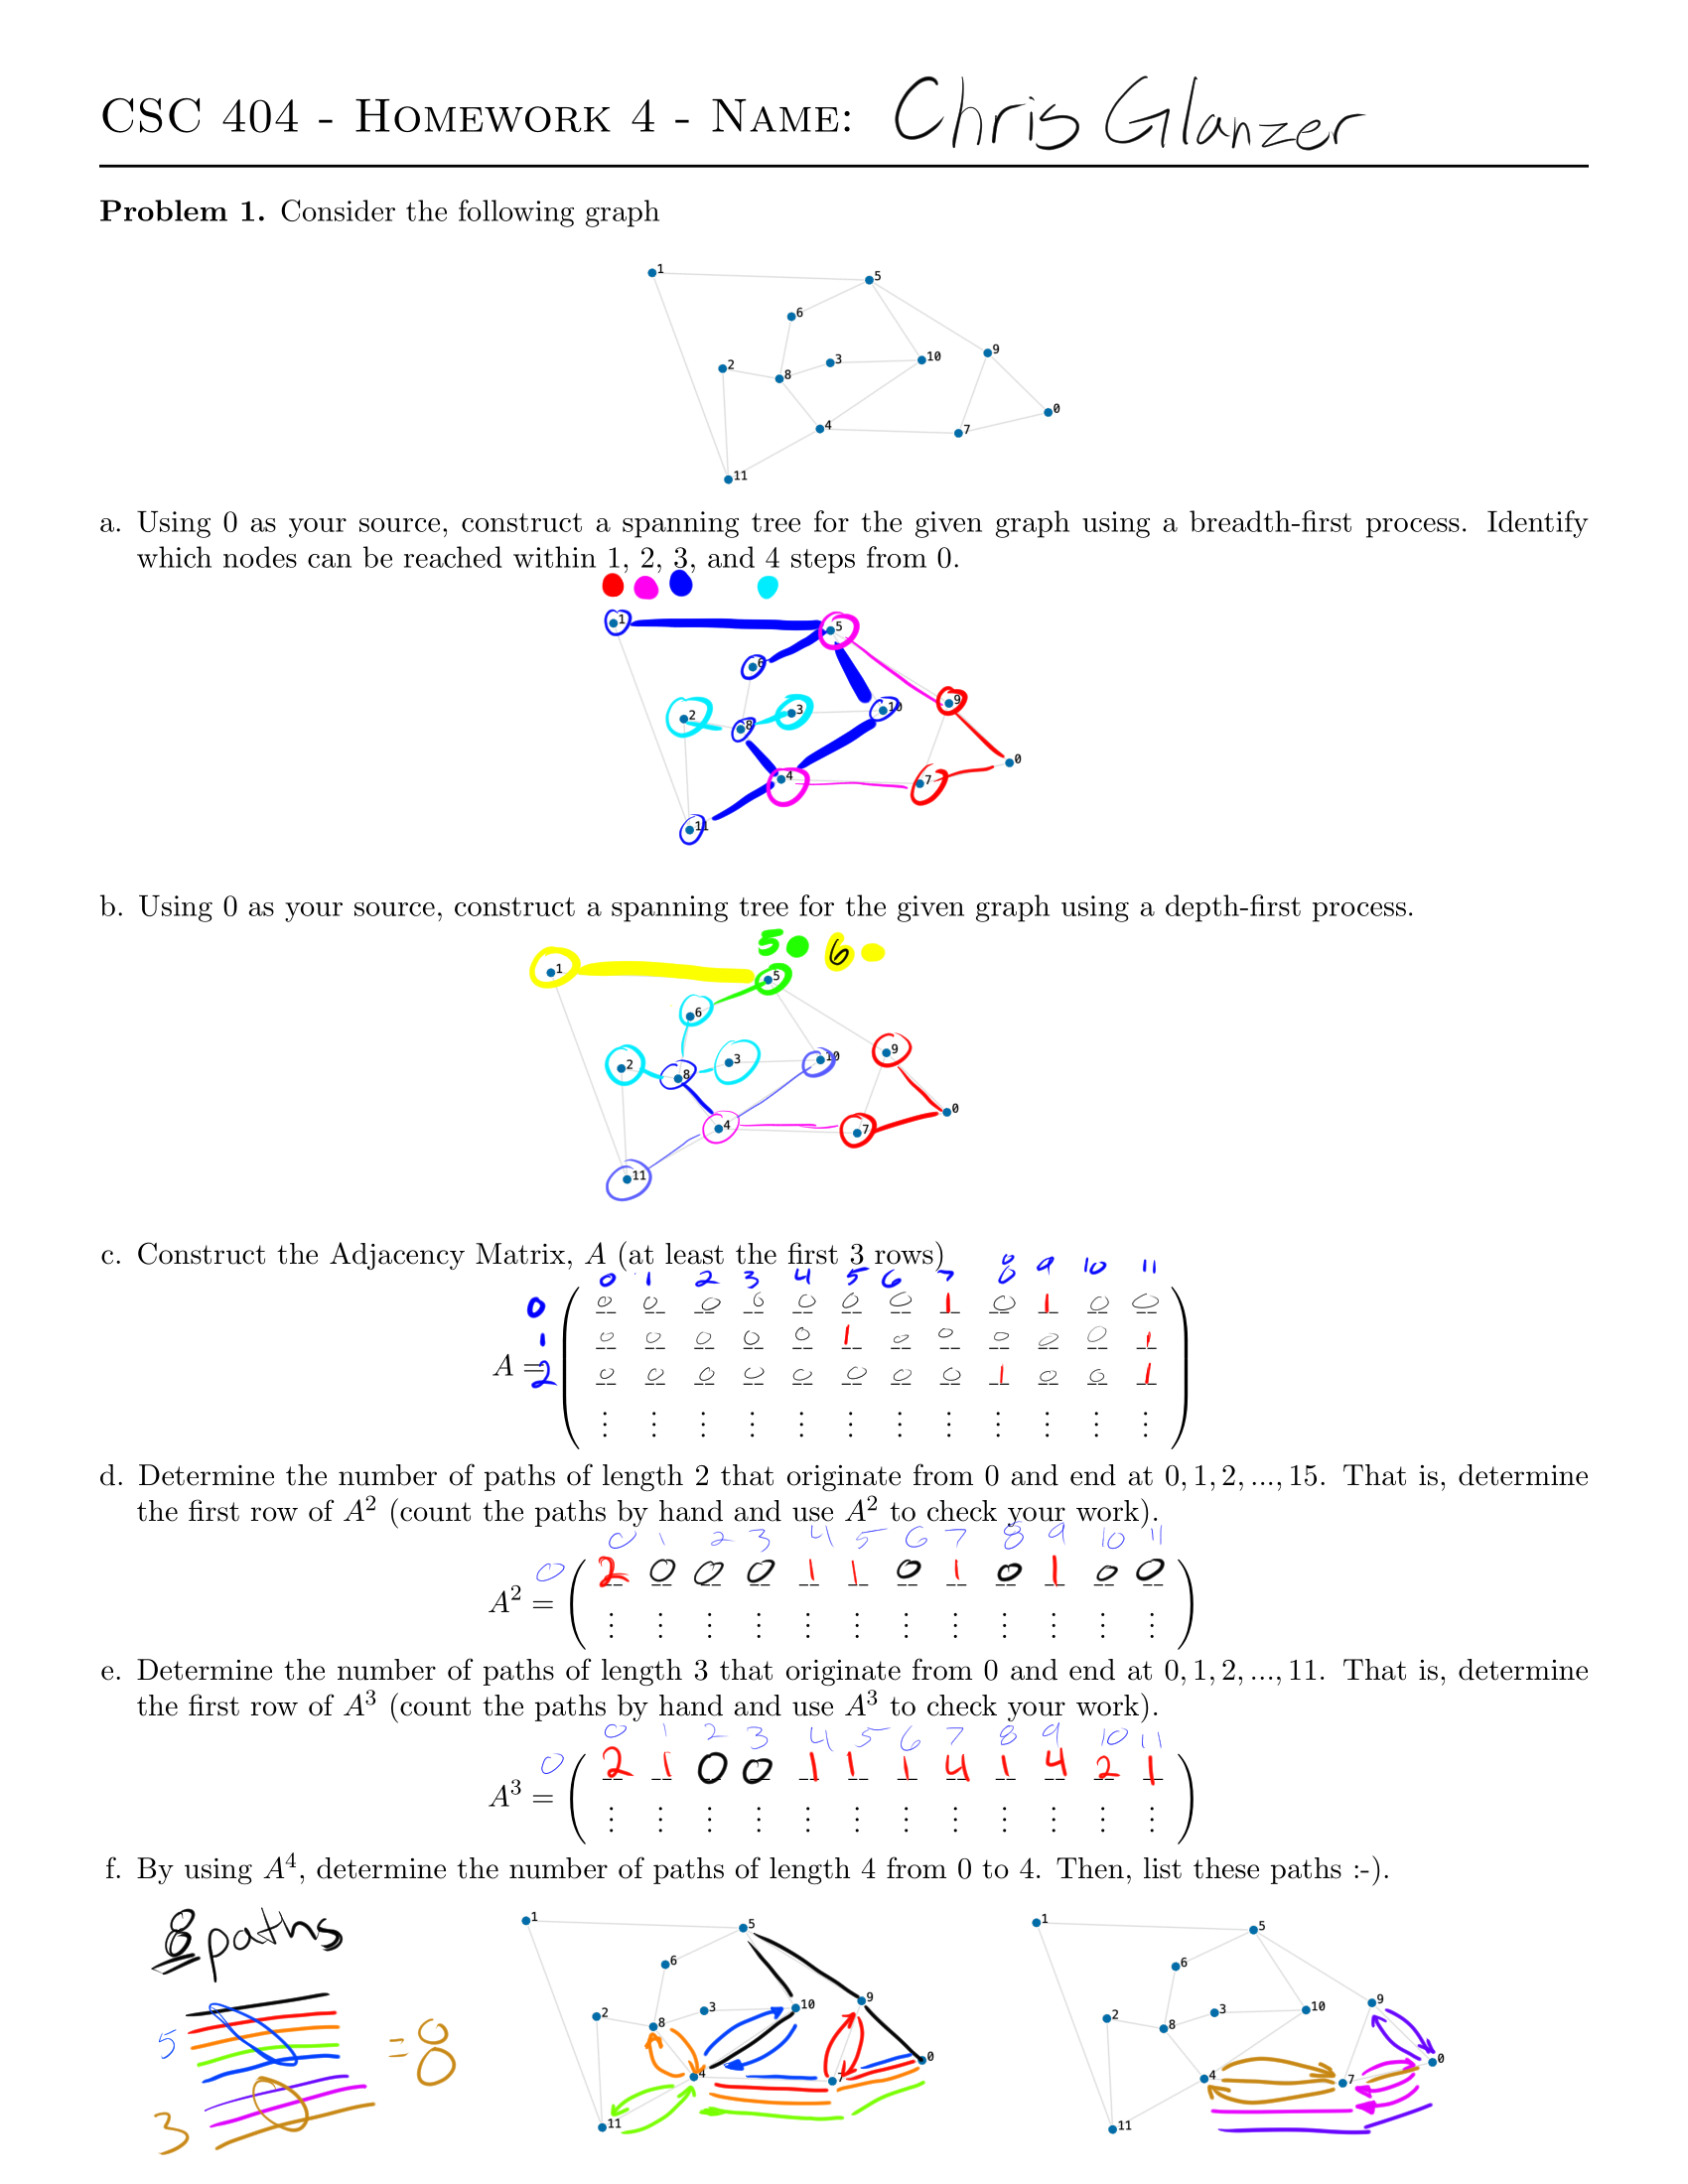 CSC 404 - Homework 4 - Name: Chris Glanzer
Problem 1. Consider the following graph
1
5
6
9
10
3
2
8
0
4
7
11
a. Using 0 as your source, construct a spanning tree for the given graph using a breadth-first process. Identify
which nodes can be reached within 1, 2, 3, and 4 steps from 0.
1
5
6
9
10
3
2
8
0
4
7
11
b. Using 0 as your source, construct a spanning tree for the given graph using a depth-first process.
5 6
1
5
6
9
10
3
2
8
0
4
7
11
c. Construct the Adjacency Matrix, A (at least the first 3 rows)
0 1 2 3 4 5 6 7 8 9 10 11
0 0 0 0 0 0 0 0 1 0 1 0 0
1 0 0 0 0 0 1 0 0 0 0 0 1
A = 2 0 0 0 0 0 0 0 0 1 0 0 1
⋮ ⋮ ⋮ ⋮ ⋮ ⋮ ⋮ ⋮ ⋮ ⋮ ⋮ ⋮
d. Determine the number of paths of length 2 that originate from 0 and end at 0, 1, 2, ..., 15. That is, determine
the first row of A² (count the paths by hand and use A² to check your work).
0 1 2 3 4 5 6 7 8 9 10 11
0 2 0 0 0 1 1 0 1 0 1 0 0
A² =
⋮ ⋮ ⋮ ⋮ ⋮ ⋮ ⋮ ⋮ ⋮ ⋮ ⋮ ⋮
e. Determine the number of paths of length 3 that originate from 0 and end at 0, 1, 2, ..., 11. That is, determine
the first row of A³ (count the paths by hand and use A³ to check your work).
0 1 2 3 4 5 6 7 8 9 10 11
0 2 1 0 0 1 1 1 4 1 4 2 1
A³ =
⋮ ⋮ ⋮ ⋮ ⋮ ⋮ ⋮ ⋮ ⋮ ⋮ ⋮ ⋮
f. By using A⁴, determine the number of paths of length 4 from 0 to 4. Then, list these paths :-).
8 paths
5
= 8
3
1
5
6
9
10
3
2
8
0
4
7
11
1
5
6
9
10
3
2
8
0
4
7
11